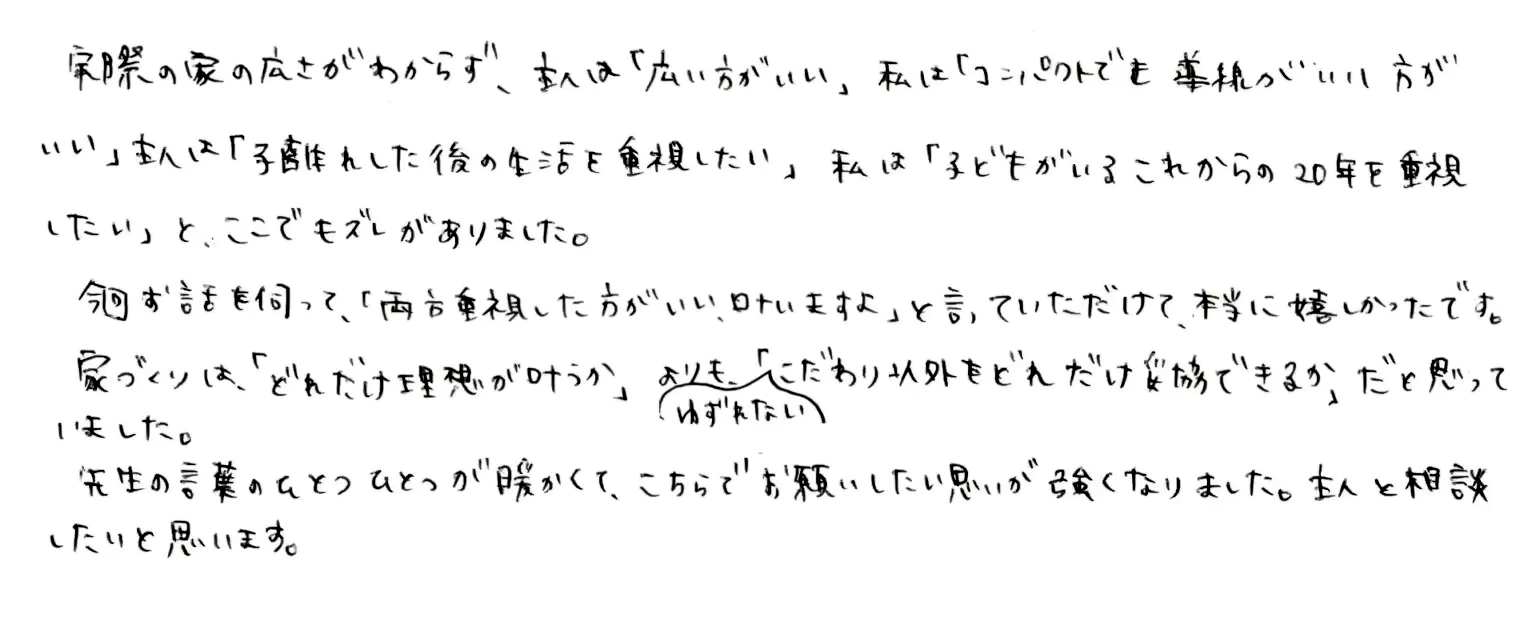 実際の家の広さがわからず、主人は「広い方がいい」私は「コンパクトでも導線がいい方が
いい」主人は「子離れした後の生活を重視したい」私は「子どもがいるこれからの20年を重視
したい」と、ここでもズレがありました。
今回お話を伺って、「両方重視した方がいい、叶いますよ」と言っていただけて、本当に嬉しかったです。
家づくりは、「どれだけ理想が叶うか」よりも、「こだわり以外をどれだけ妥協できるか」だと思って
ゆずれない
いました。
先生の言葉のひとつひとつが暖かくて、こちらでお願いしたい思いが強くなりました。主人と相談
したいと思います。